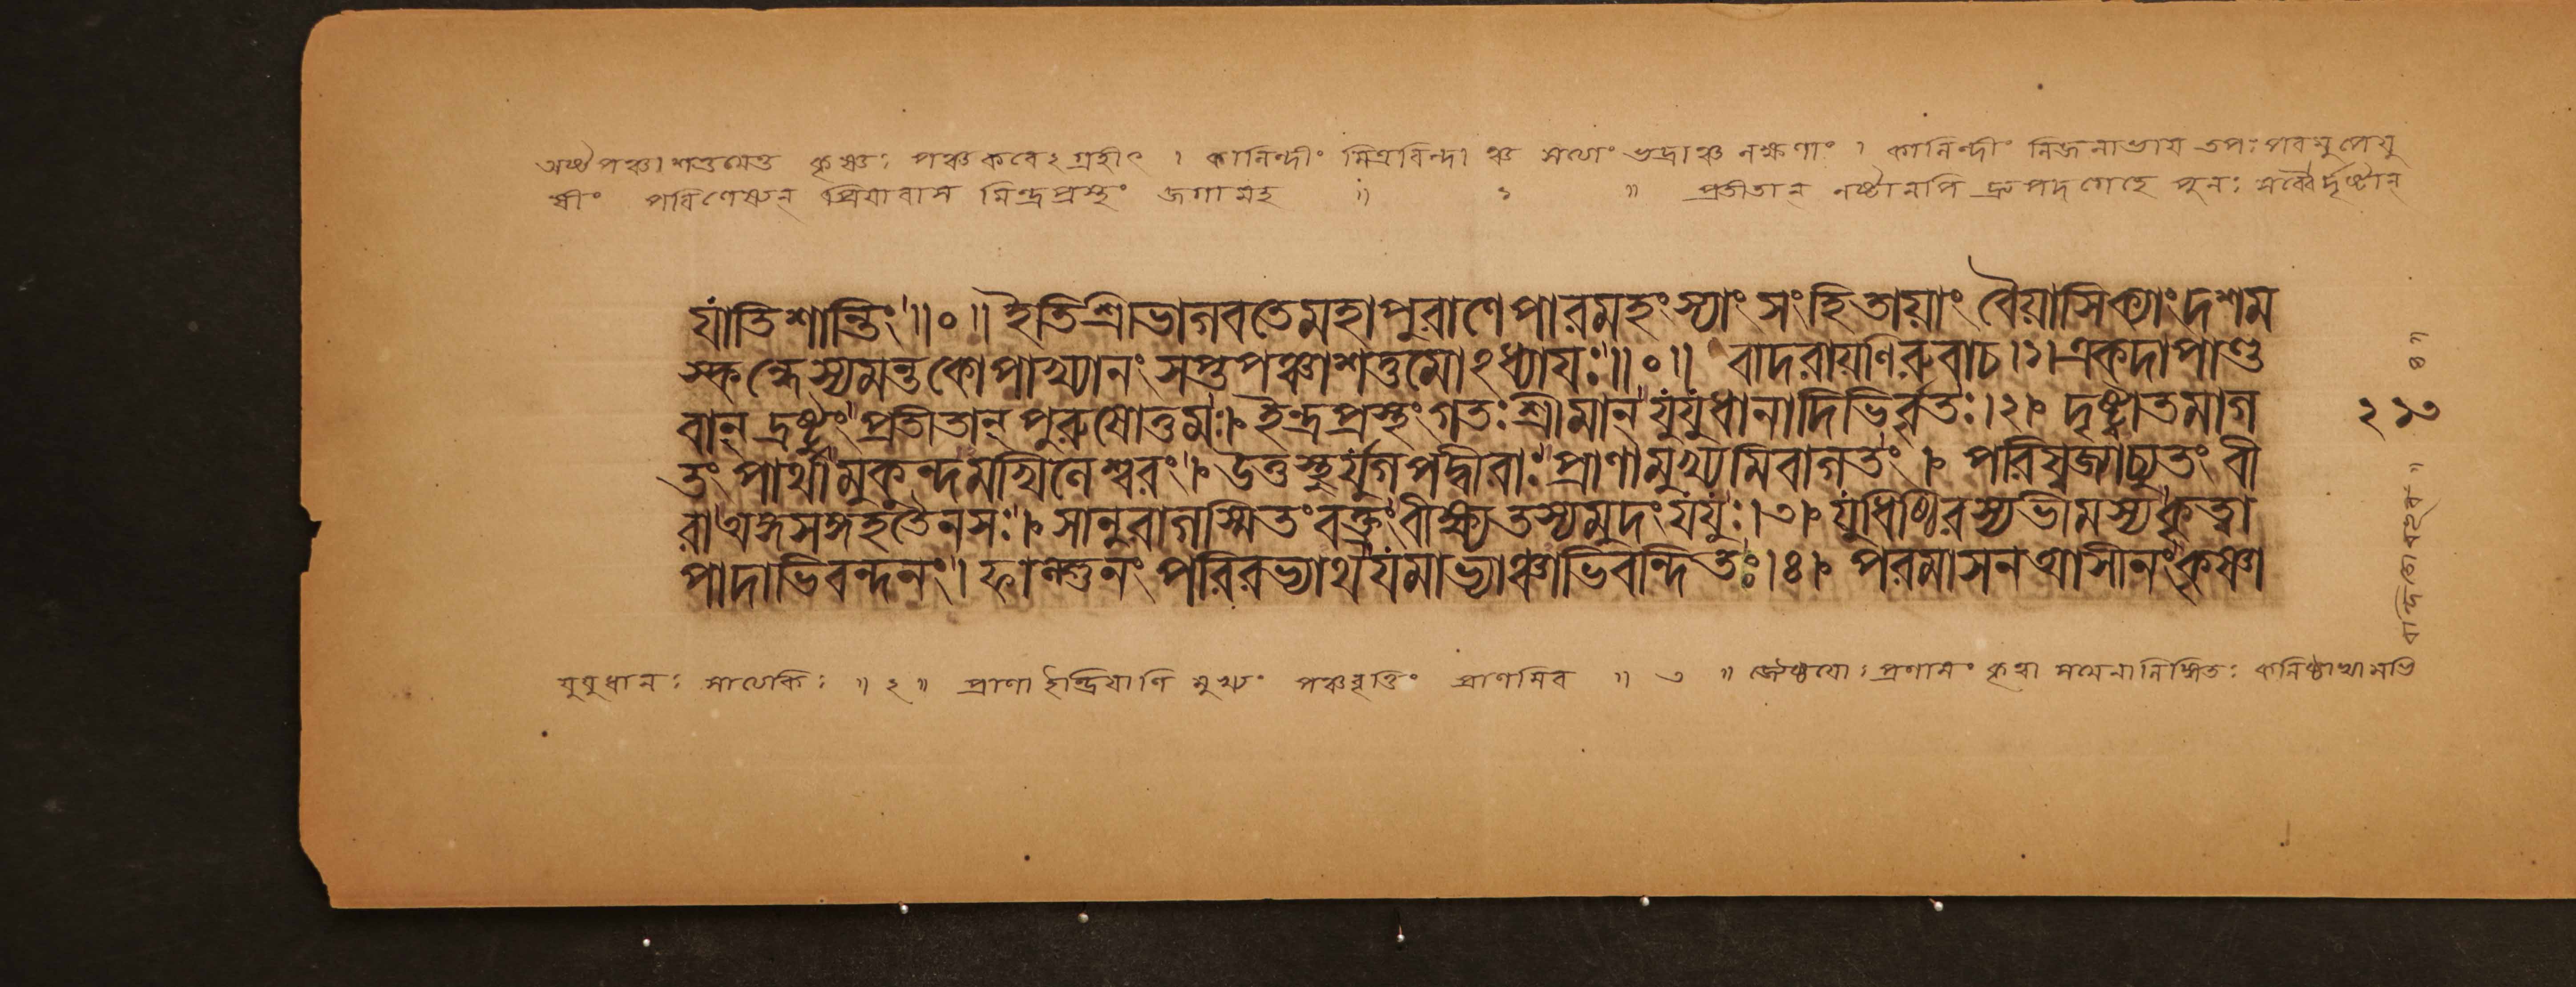 অষ্টপঞ্চাশত্তমেতু কৃষ্ণঃ পঞ্চকরেঽগ্রহীৎ । কালিন্দীং মিত্রবিন্দা ঞ্চ সত্যাং ভদ্রাঞ্চ লক্ষণাং । কালিন্দীং নিজলাভায় তপঃপরমুপেয়ু
ষীং পরিণেষ্যন্ প্রিয়াবাস মিন্দ্রপ্রস্থং জগামহ ॥ ১ ॥ প্রতীতান্ নষ্টানপি দ্রুপদ গেহে পুনঃ সর্ব্বৈর্দৃষ্টান্
যাংতিশান্তিং ॥৹॥ ইতিশ্রীভাগবতেমহাপুরাণেপারমহংস্যাং সংহিতায়াং বৈয়াসিক্যাংদশম
স্কন্ধেস্যমন্তকোপাখ্যানং সপ্তপঞ্চাশত্তমোঽধ্যায়ঃ॥৹॥ বাদরায়ণিরুবাচ।১।একদাপাণ্ড
বান্ দ্রষ্টুং প্রতীতান্ পুরুষোত্তমঃ। ইন্দ্রপ্রস্থংগতঃশ্রীমান্ যুযুধানাদিভির্বৃতঃ।২। দৃষ্ট্বাতমাগ
তং পার্থামুকুন্দমখিলেশ্বরং । উত্তস্থুর্যুগপদ্বীরাঃ প্রাণামুখ্যমিবাগতং । পরিষ্বজ্যাচ্যুতং বী
রাঅঙ্গসঙ্গহতৈনসঃ। সানুরাগস্মিতংবক্ত্রংবীক্ষ্যতস্যমুদংযযুঃ।৩। যুধিষ্ঠিরস্যভীমস্যকৃত্বা
পাদাভিবন্দনং। ফাল্গুনং পরিরভ্যাথযমাভ্যাঞ্চাভিবন্দিতঃ।৪। পরমাসনআসীনংকৃষ্ণা
২১৩
যুযুধানঃ সাত্যকিঃ ॥ ২ ॥ প্রাণা ইন্দ্রিয়াণি মুখ্যং পঞ্চবৃত্তিং প্রাণমিব ॥ ৩ ॥ জ্যেষ্ঠয়োঃ প্রণামং কৃত্বা সমেনালিঙ্গিতঃ কনিষ্ঠাভ্যামভি
বন্দিতো বভূব ॥ ৪ ॥